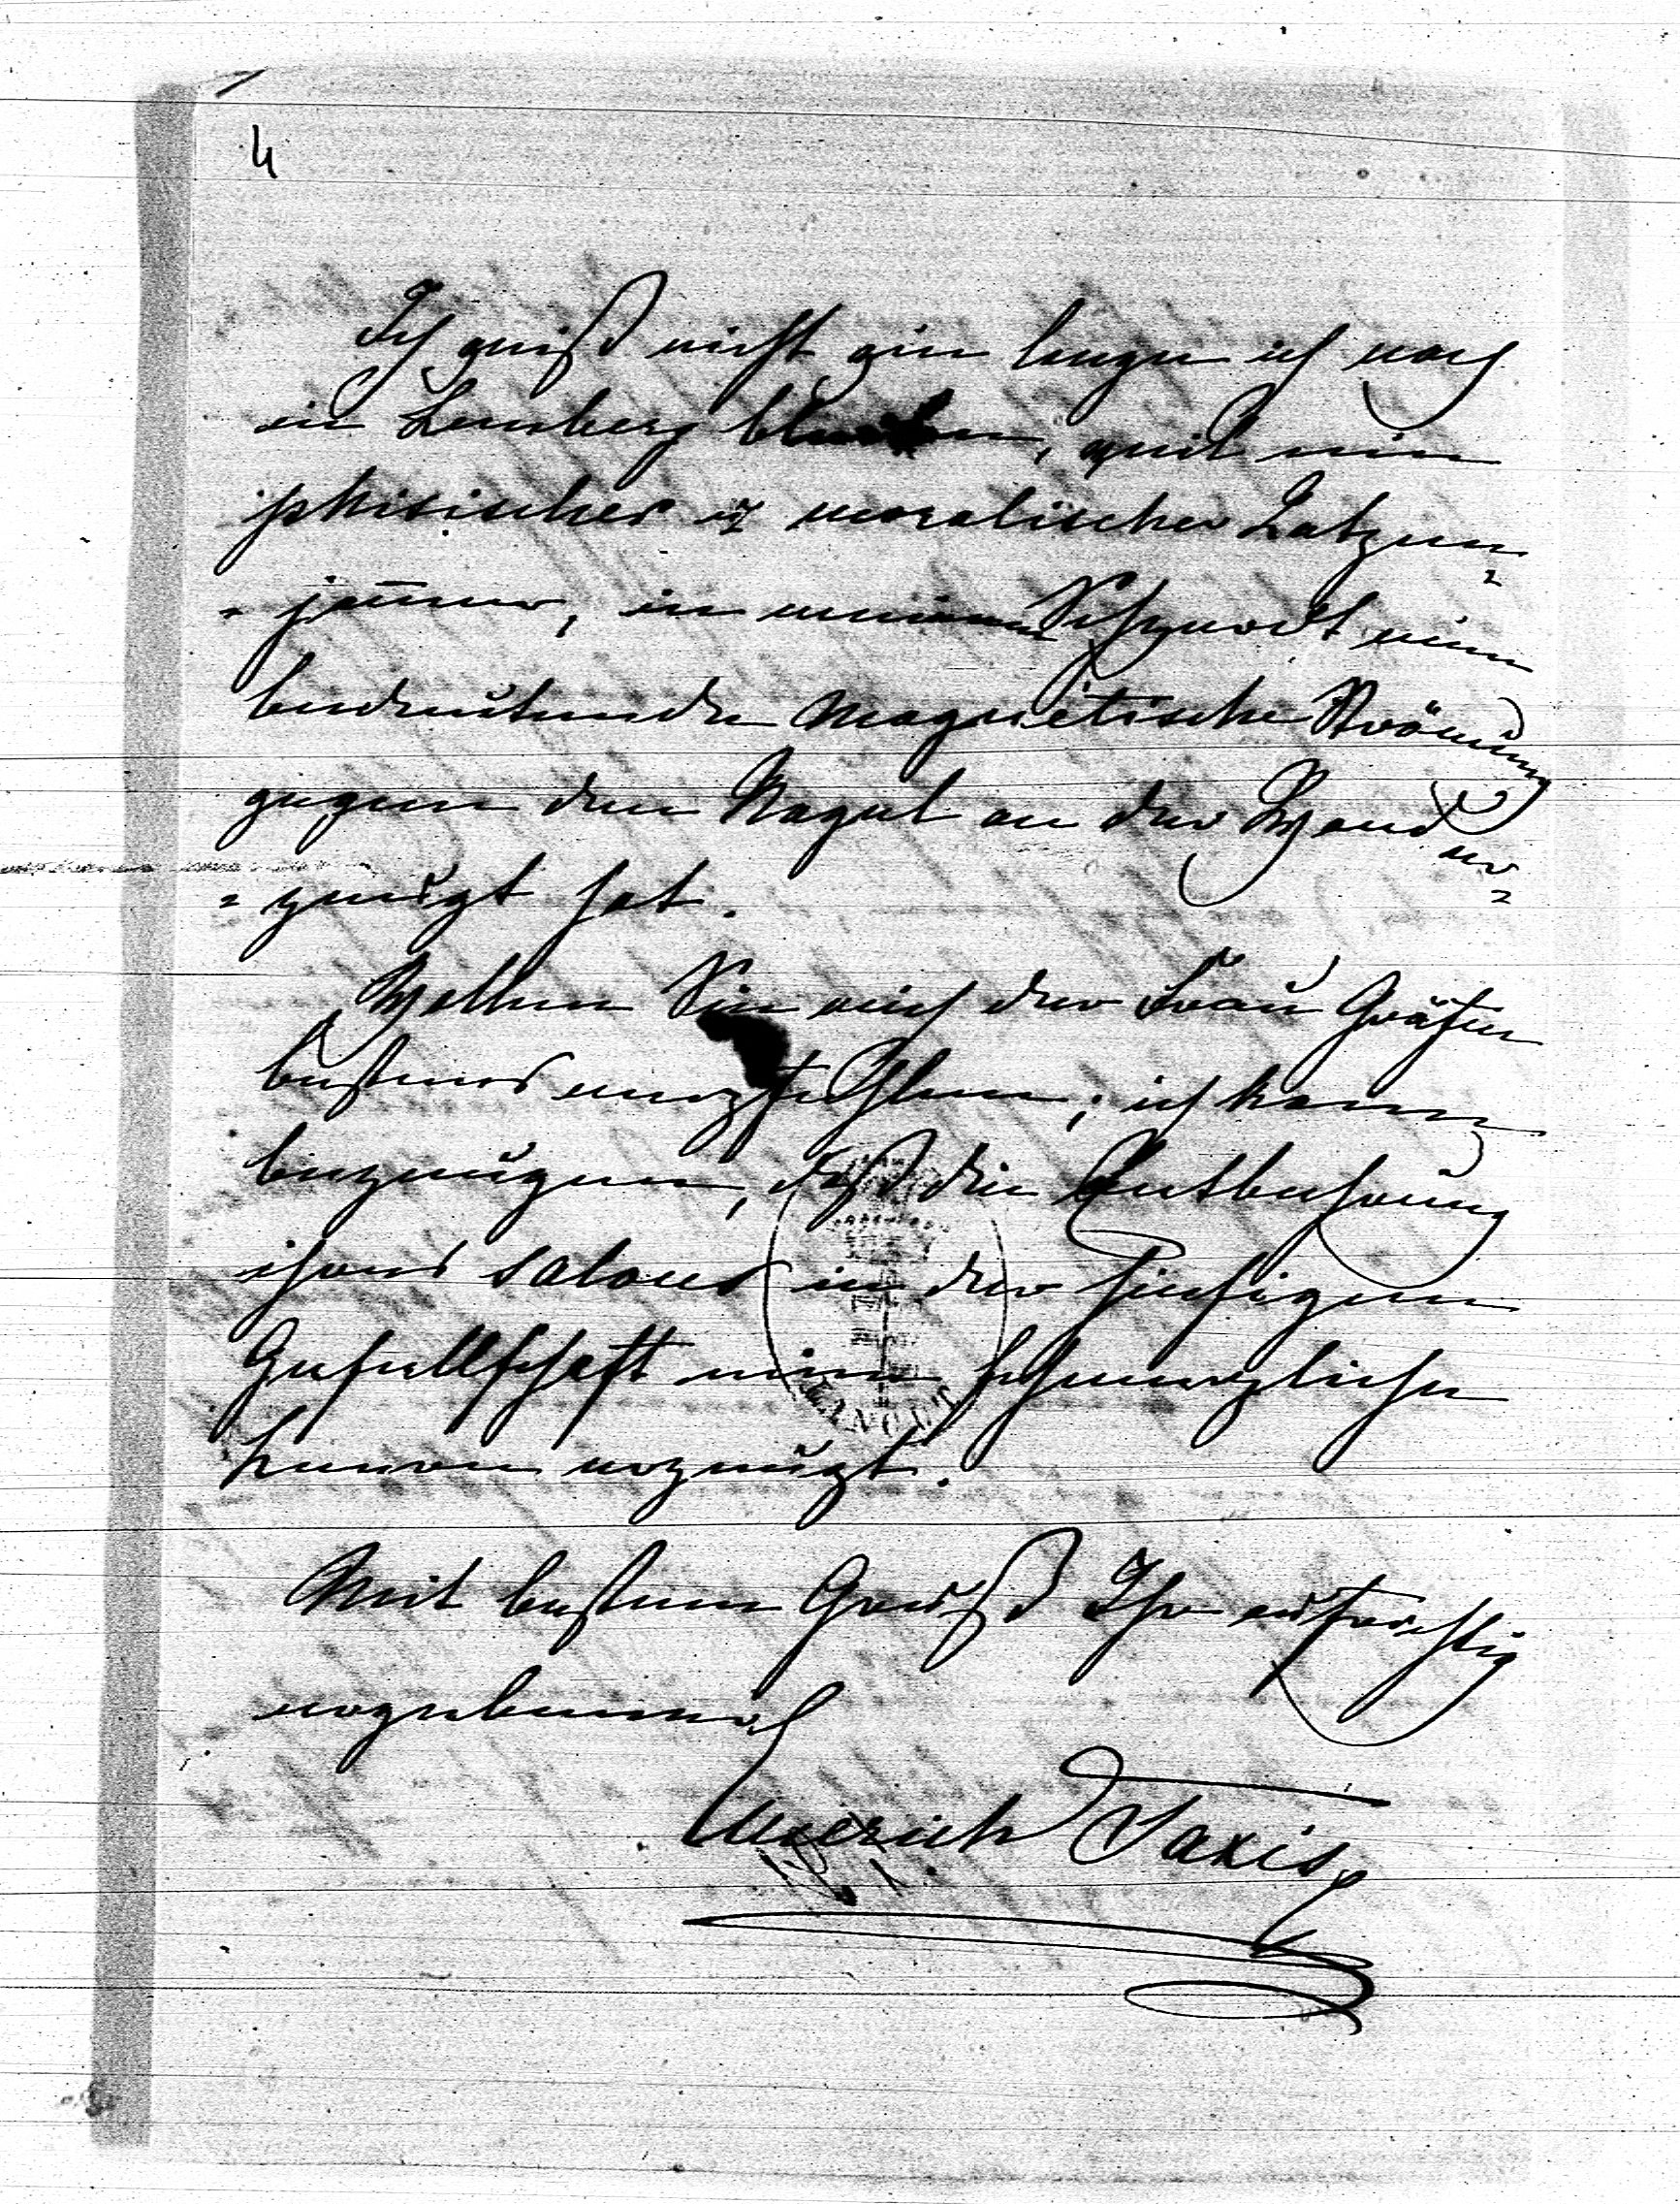 4
Ich weiß nicht wie lange ich noch
in Lemberg bleiben, weil ein
phisischer u moralischer Katzen=
=jammer, in meinem Schwert eine
bedeutende magnetische Strömung
gegen den Nagel an der Wand er=
=zeugt hat.
Wollen Sie mich der Frau Gräfin
bestens empfehlen; ich kann
bezeugen, daß die Entbehrung
ihres salons in der hiesigen
Gesellschaft eine schmerzliche
erzeugt.
Mit bestem Gruß Ihr aufrichtig
ergebener
Emerich Taxis